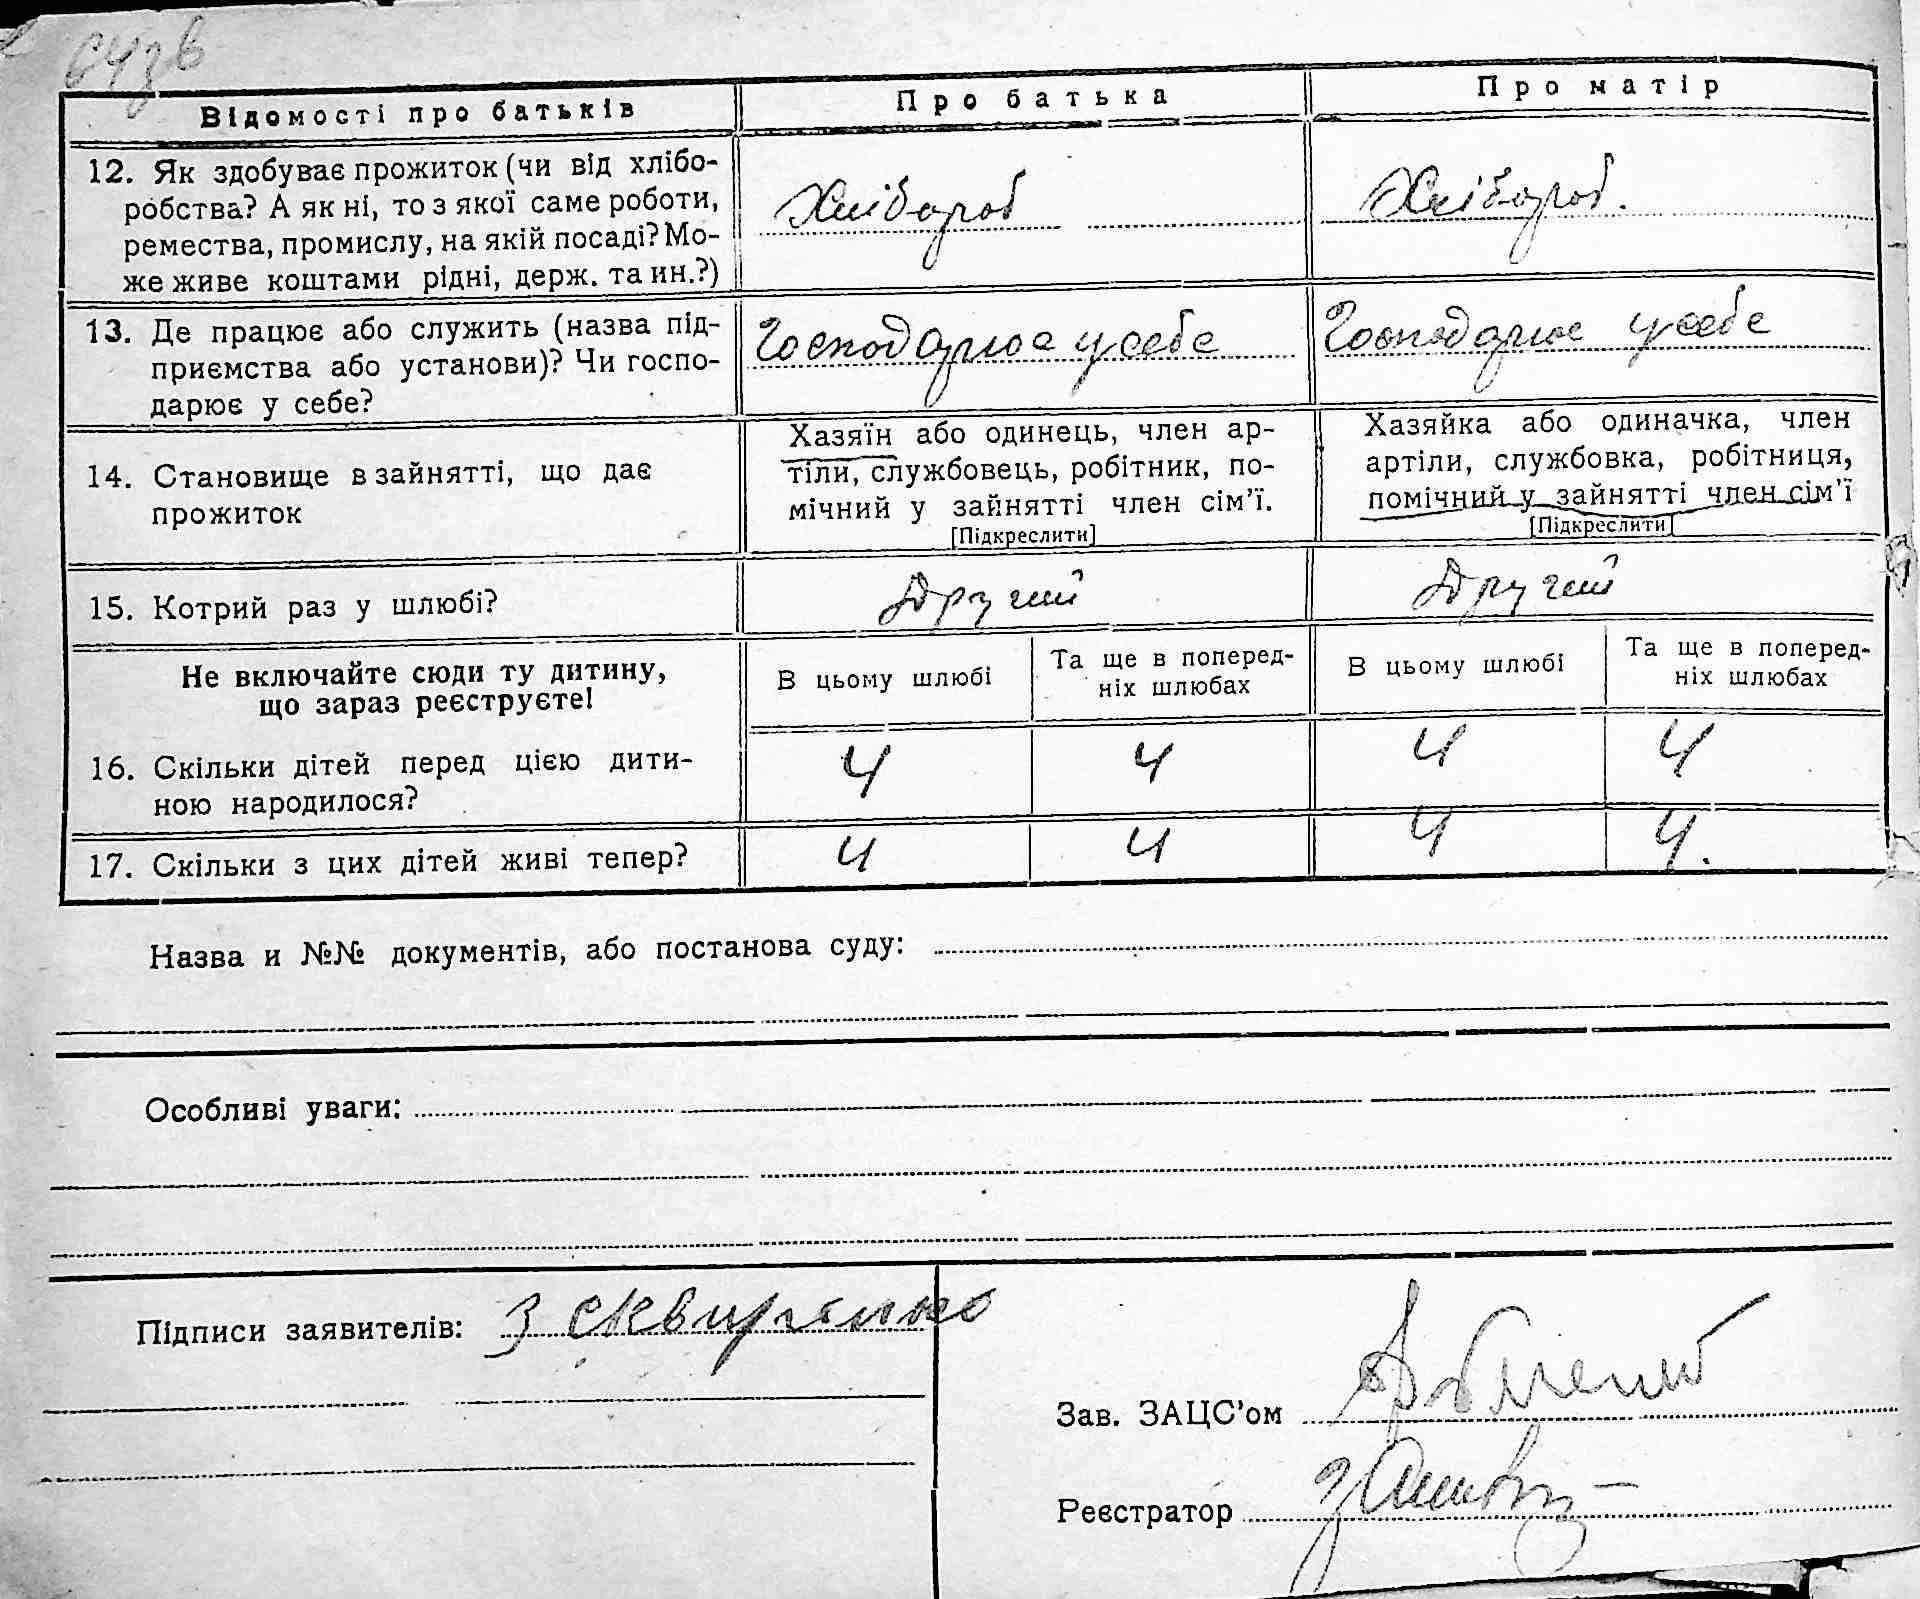 Відомості про батьків
Про батька
Про матір
12. Як здобуває прожиток (чи від хлібо-
робства? А як ні, то з якої саме роботи,
ремества, промислу, на якій посаді? Мо-
же живе коштами рідні, держ. та ин.?)
Хлібороб
Хлібороб.
13. Де працює або служить (назва під-
приємства або установи)? Чи госпо-
дарює у себе?
Господарює у себе
Господарює у себе
14. Становище в зайнятті, що дає
прожиток
Хазяїн або одинець, член ар-
тіли, службовець, робітник, по-
мічний у зайнятті член сім’ї.
[Підкреслити]
Хазяйка або одиначка, член
артіли, службовка, робітниця,
помічний у зайнятті член сім’ї
[Підкреслити]
15. Котрий раз у шлюбі?
Другий
Другий
Не включайте сюди ту дитину,
що зараз реєструєте!
В цьому шлюбі
Та ще в поперед-
ніх шлюбах
В цьому шлюбі
Та ще в поперед-
ніх шлюбах
16. Скільки дітей перед цією дити-
ною народилося?
4
4
4
4
17. Скільки з цих дітей живі тепер?
4
4
4
4.
Назва и №№ документів, або постанова суду:
Особливі уваги:
Підписи заявителів:
Зав. ЗАЦС’ом
Реєстратор